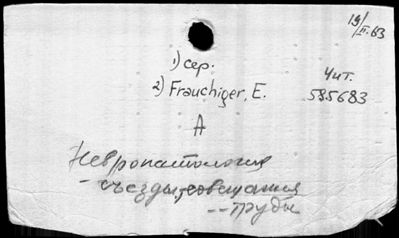 19/II.63
1) сер.
Чит.
2) Frauchiger, E.
595683
А
Невропатология
- съезды, совещания
-- труды